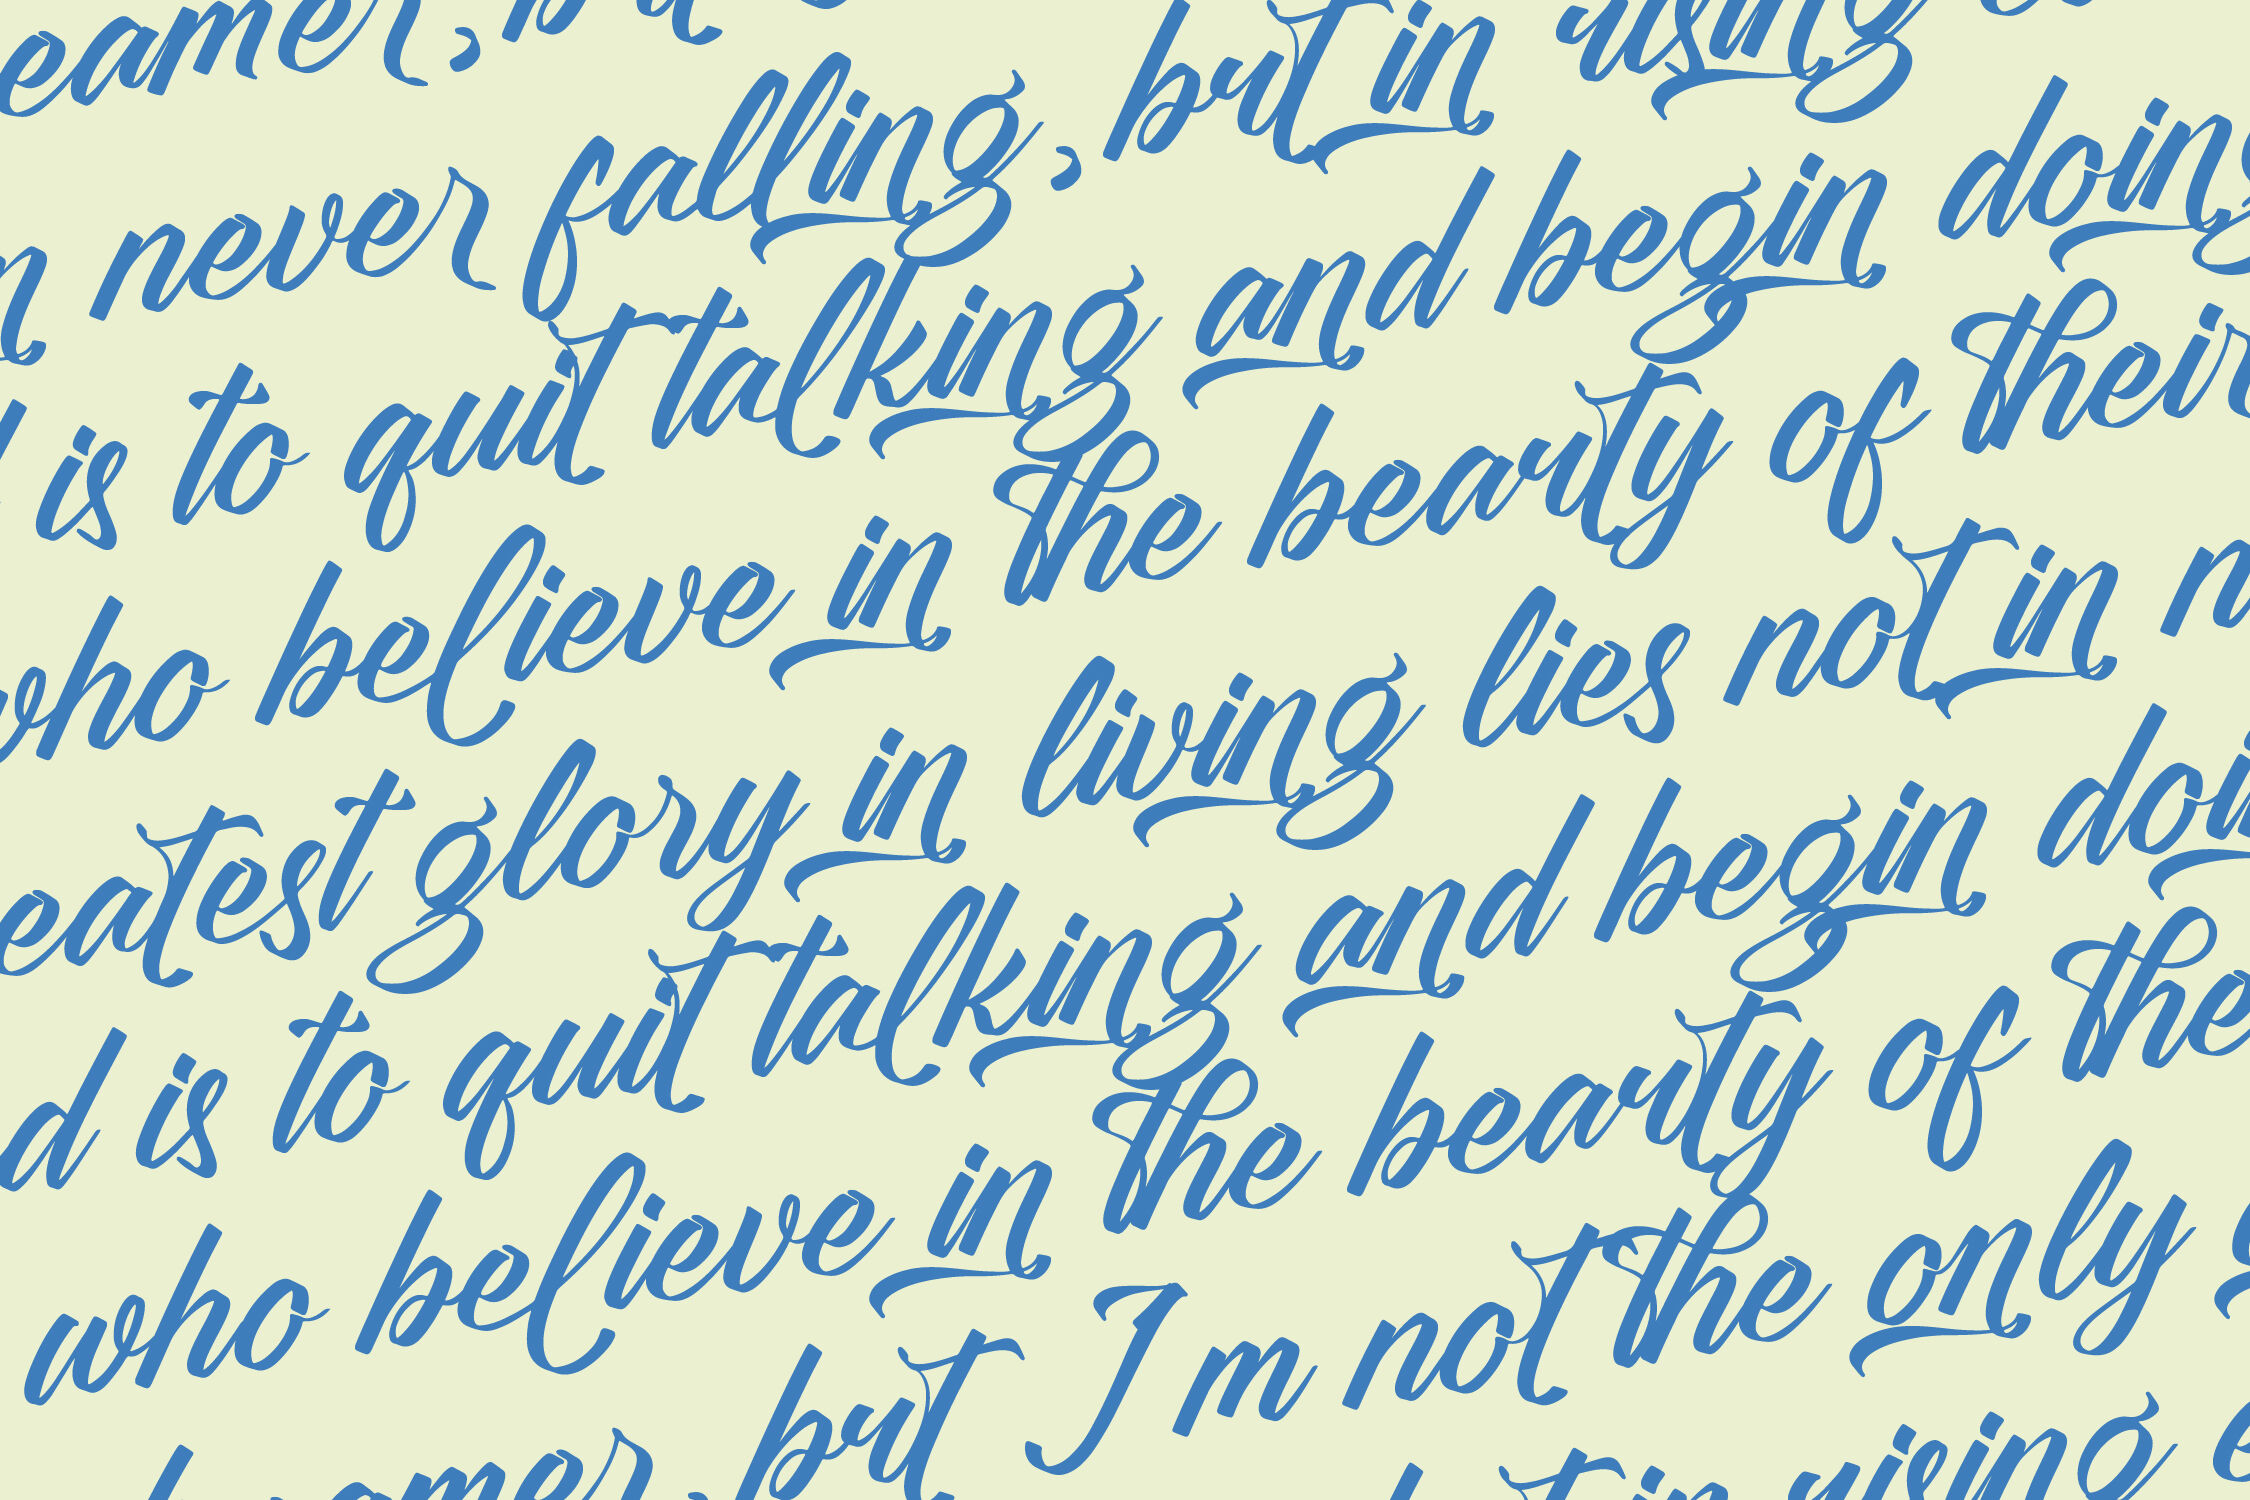 eamer,
never falling, but in rising
is to quit talking and begin doing
who believe in the beauty of their
eatest glory in living lies not in
d is to quit talking and begin doin
who believe in the beauty of the
eamer, but I m not the only
t in rising